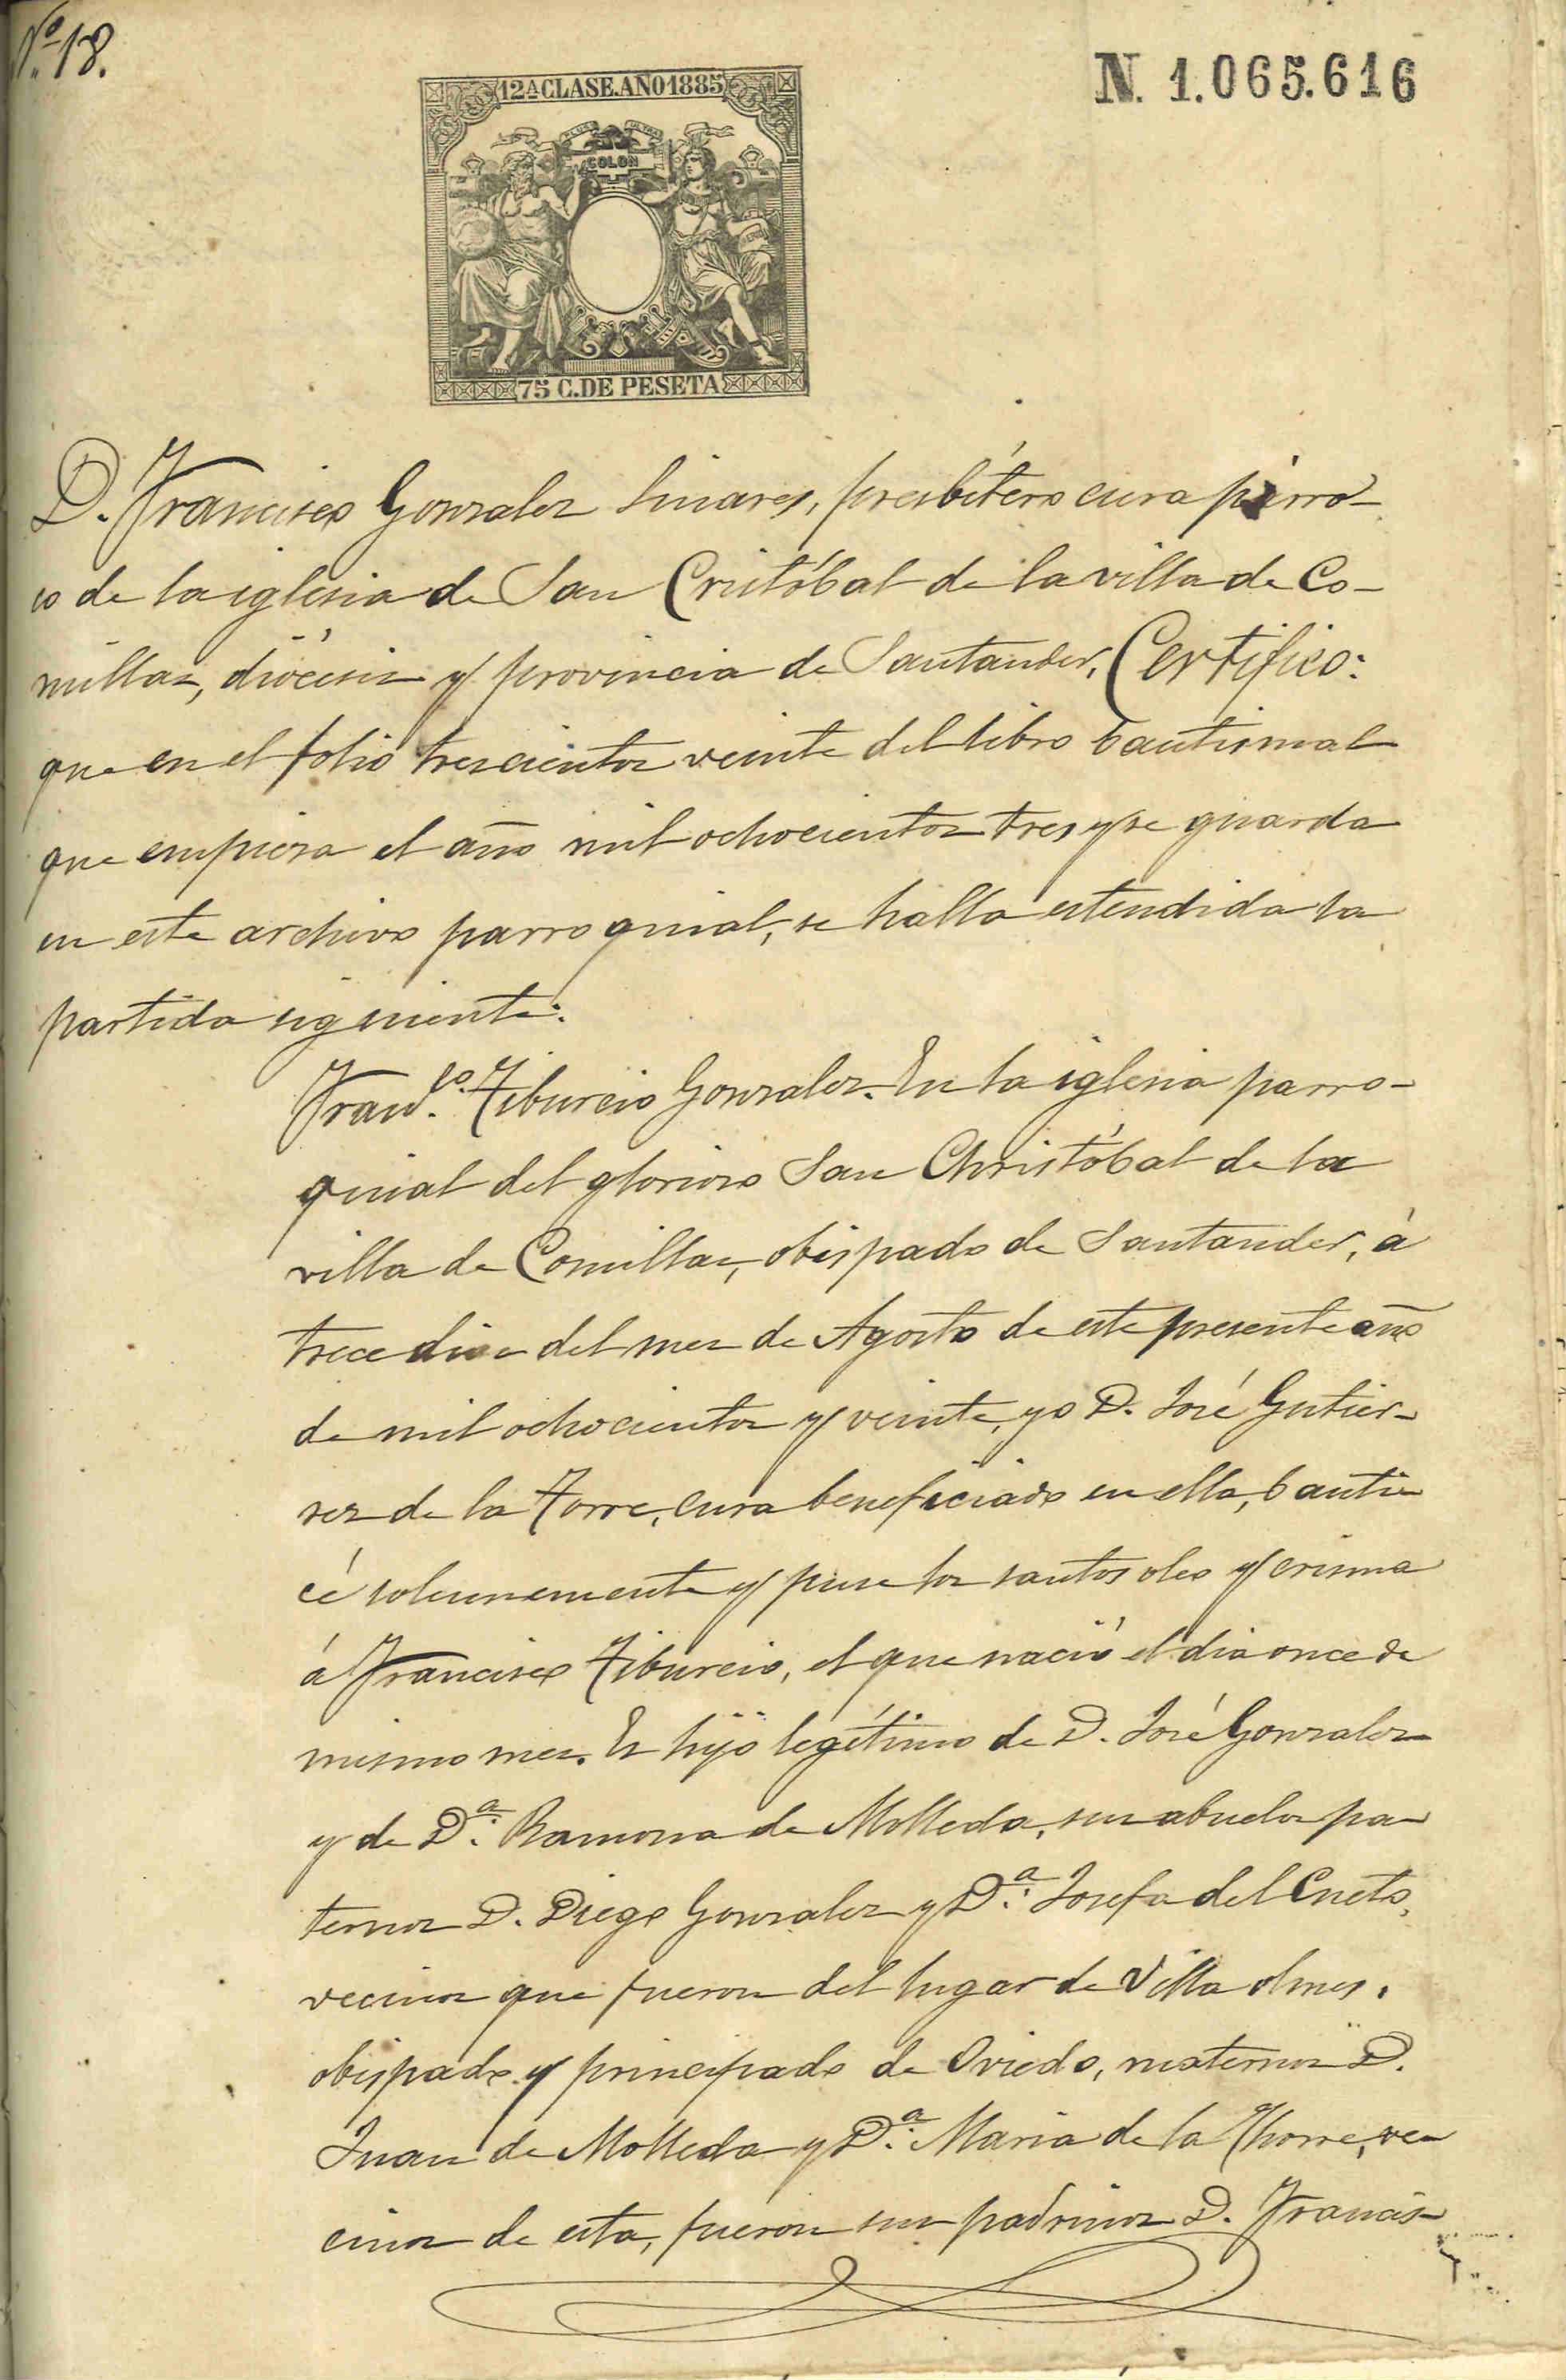 Nº 18.
12ª CLASE. AÑO 1885
N. 1.065.616
PLUS ULTRA
COLON
75 C. DE PESETA
D. Francisco Gonzalez Linares, presbítero cura párro-
co de la iglesia de San Cristóbal de la villa de Co-
millas, diócesis y provincia de Santander, Certifico:
que en el folio trescientos veinte del libro bautismal
que empieza el año mil ochocientos tres y se guarda
en este archivo parroquial, se halla estendida la
partida siguiente:
Franco. Tiburcio Gonzalez. En la iglesia parro-
quial del glorioso San Christóbal de la
villa de Comillas, obispado de Santander, á
trece dias del mes de Agosto de este presente año
de mil ochocientos y veinte, yo D. José Gutier-
rez de la Torre, cura beneficiado en ella, bauti-
cé solemnemente y puse los santos oleo y crisma
á Francisco Tiburcio, el que nació el dia once de
mismo mes. Es hijo legítimo de D. José Gonzalez
y de Dª. Ramona de Molleda, sus abuelos pa-
ternos D. Diego Gonzalez y Dª. Josefa del Cueto,
vecinos que fueron del lugar de Villa olmes,
obispado y principado de Oviedo, maternos D.
Juan de Molleda y Dª. Maria de la Thorre, ve-
cinos de esta, fueron sus padrinos D. Francis-